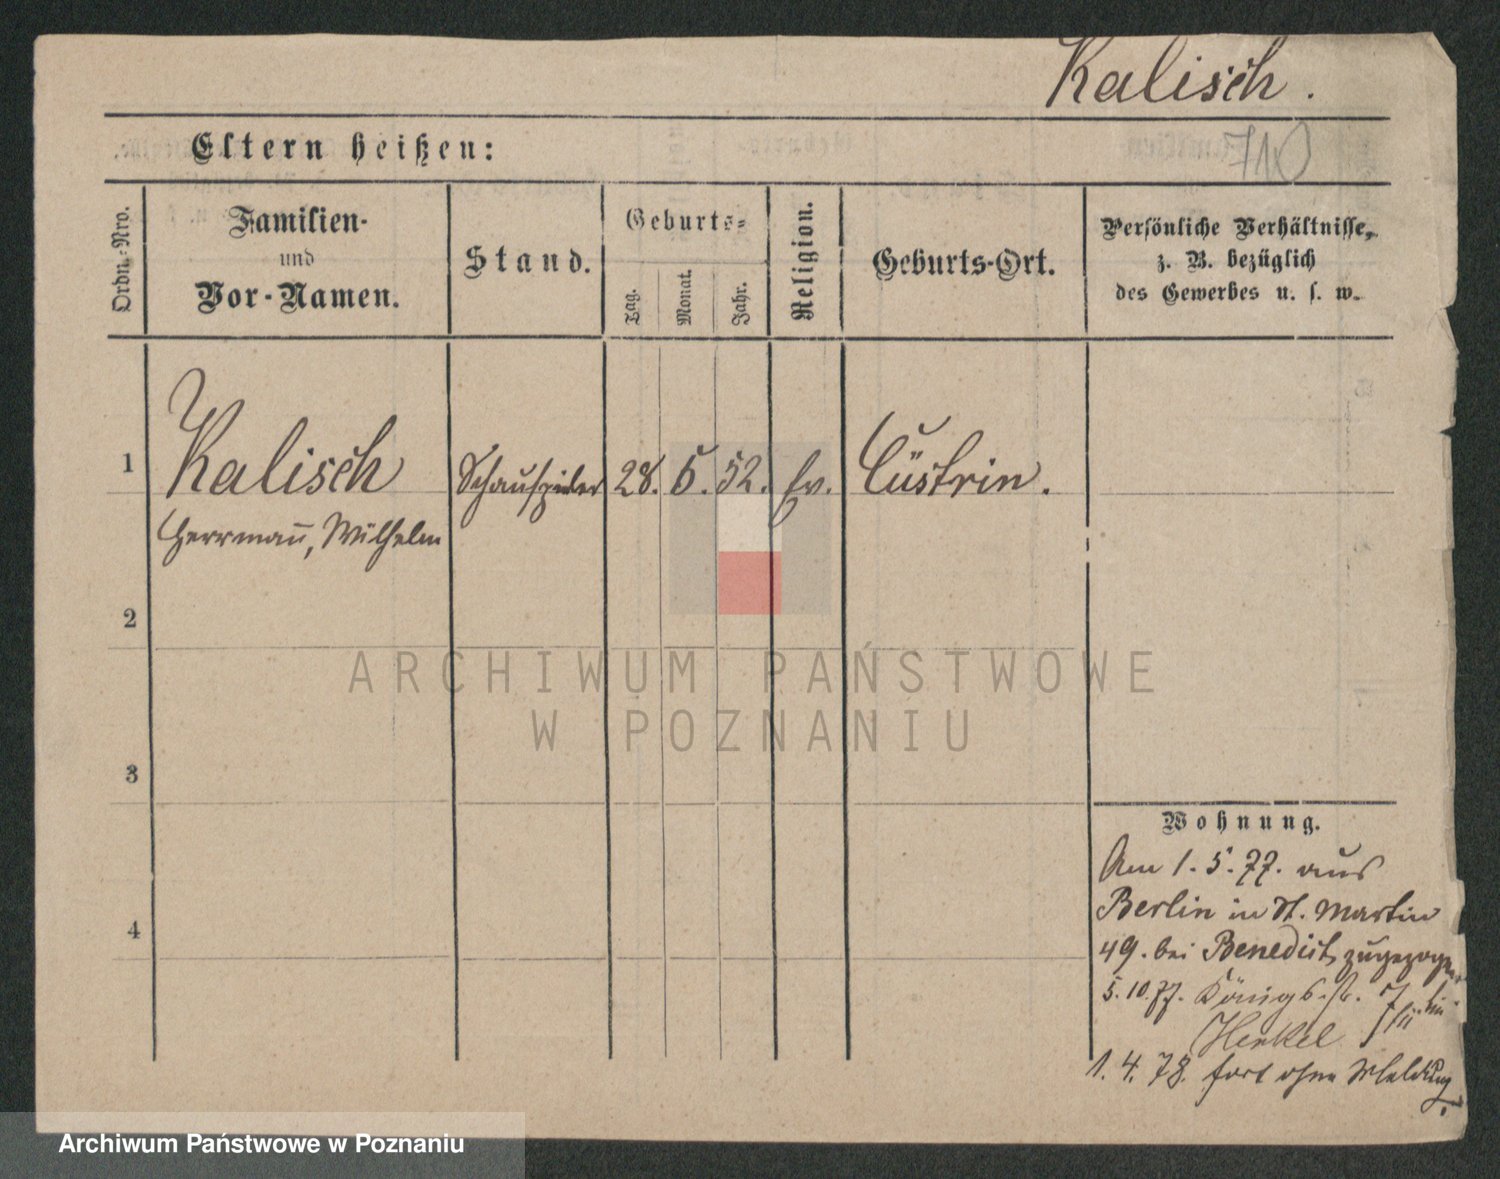 Kalisch.
710
Eltern heißen:
Ordn.-Nro.
Familien-
und
Vor-Namen.
Stand.
Geburts-
Tag.
Monat.
Jahr.
Religion.
Geburts-Ort.
Persönliche Verhältnisse,
z. B. bezüglich
des Gewerbes u. s. w.
1
Kalisch
Herrmañ, Wilhelm
Schauspieler
28. 5. 52.
Ev.
Cüstrin.
2
3
4
Wohnung.
Am 1. 5. 77. aus
Berlin in St. Martin
49. bei Benedict zugezogen
5. 10. 77. Königs-str. 7 bei
Henkel
1. 4. 78. fort ohne Meldung.
ARCHIWUM PAŃSTWOWE
W POZNANIU
Archiwum Państwowe w Poznaniu